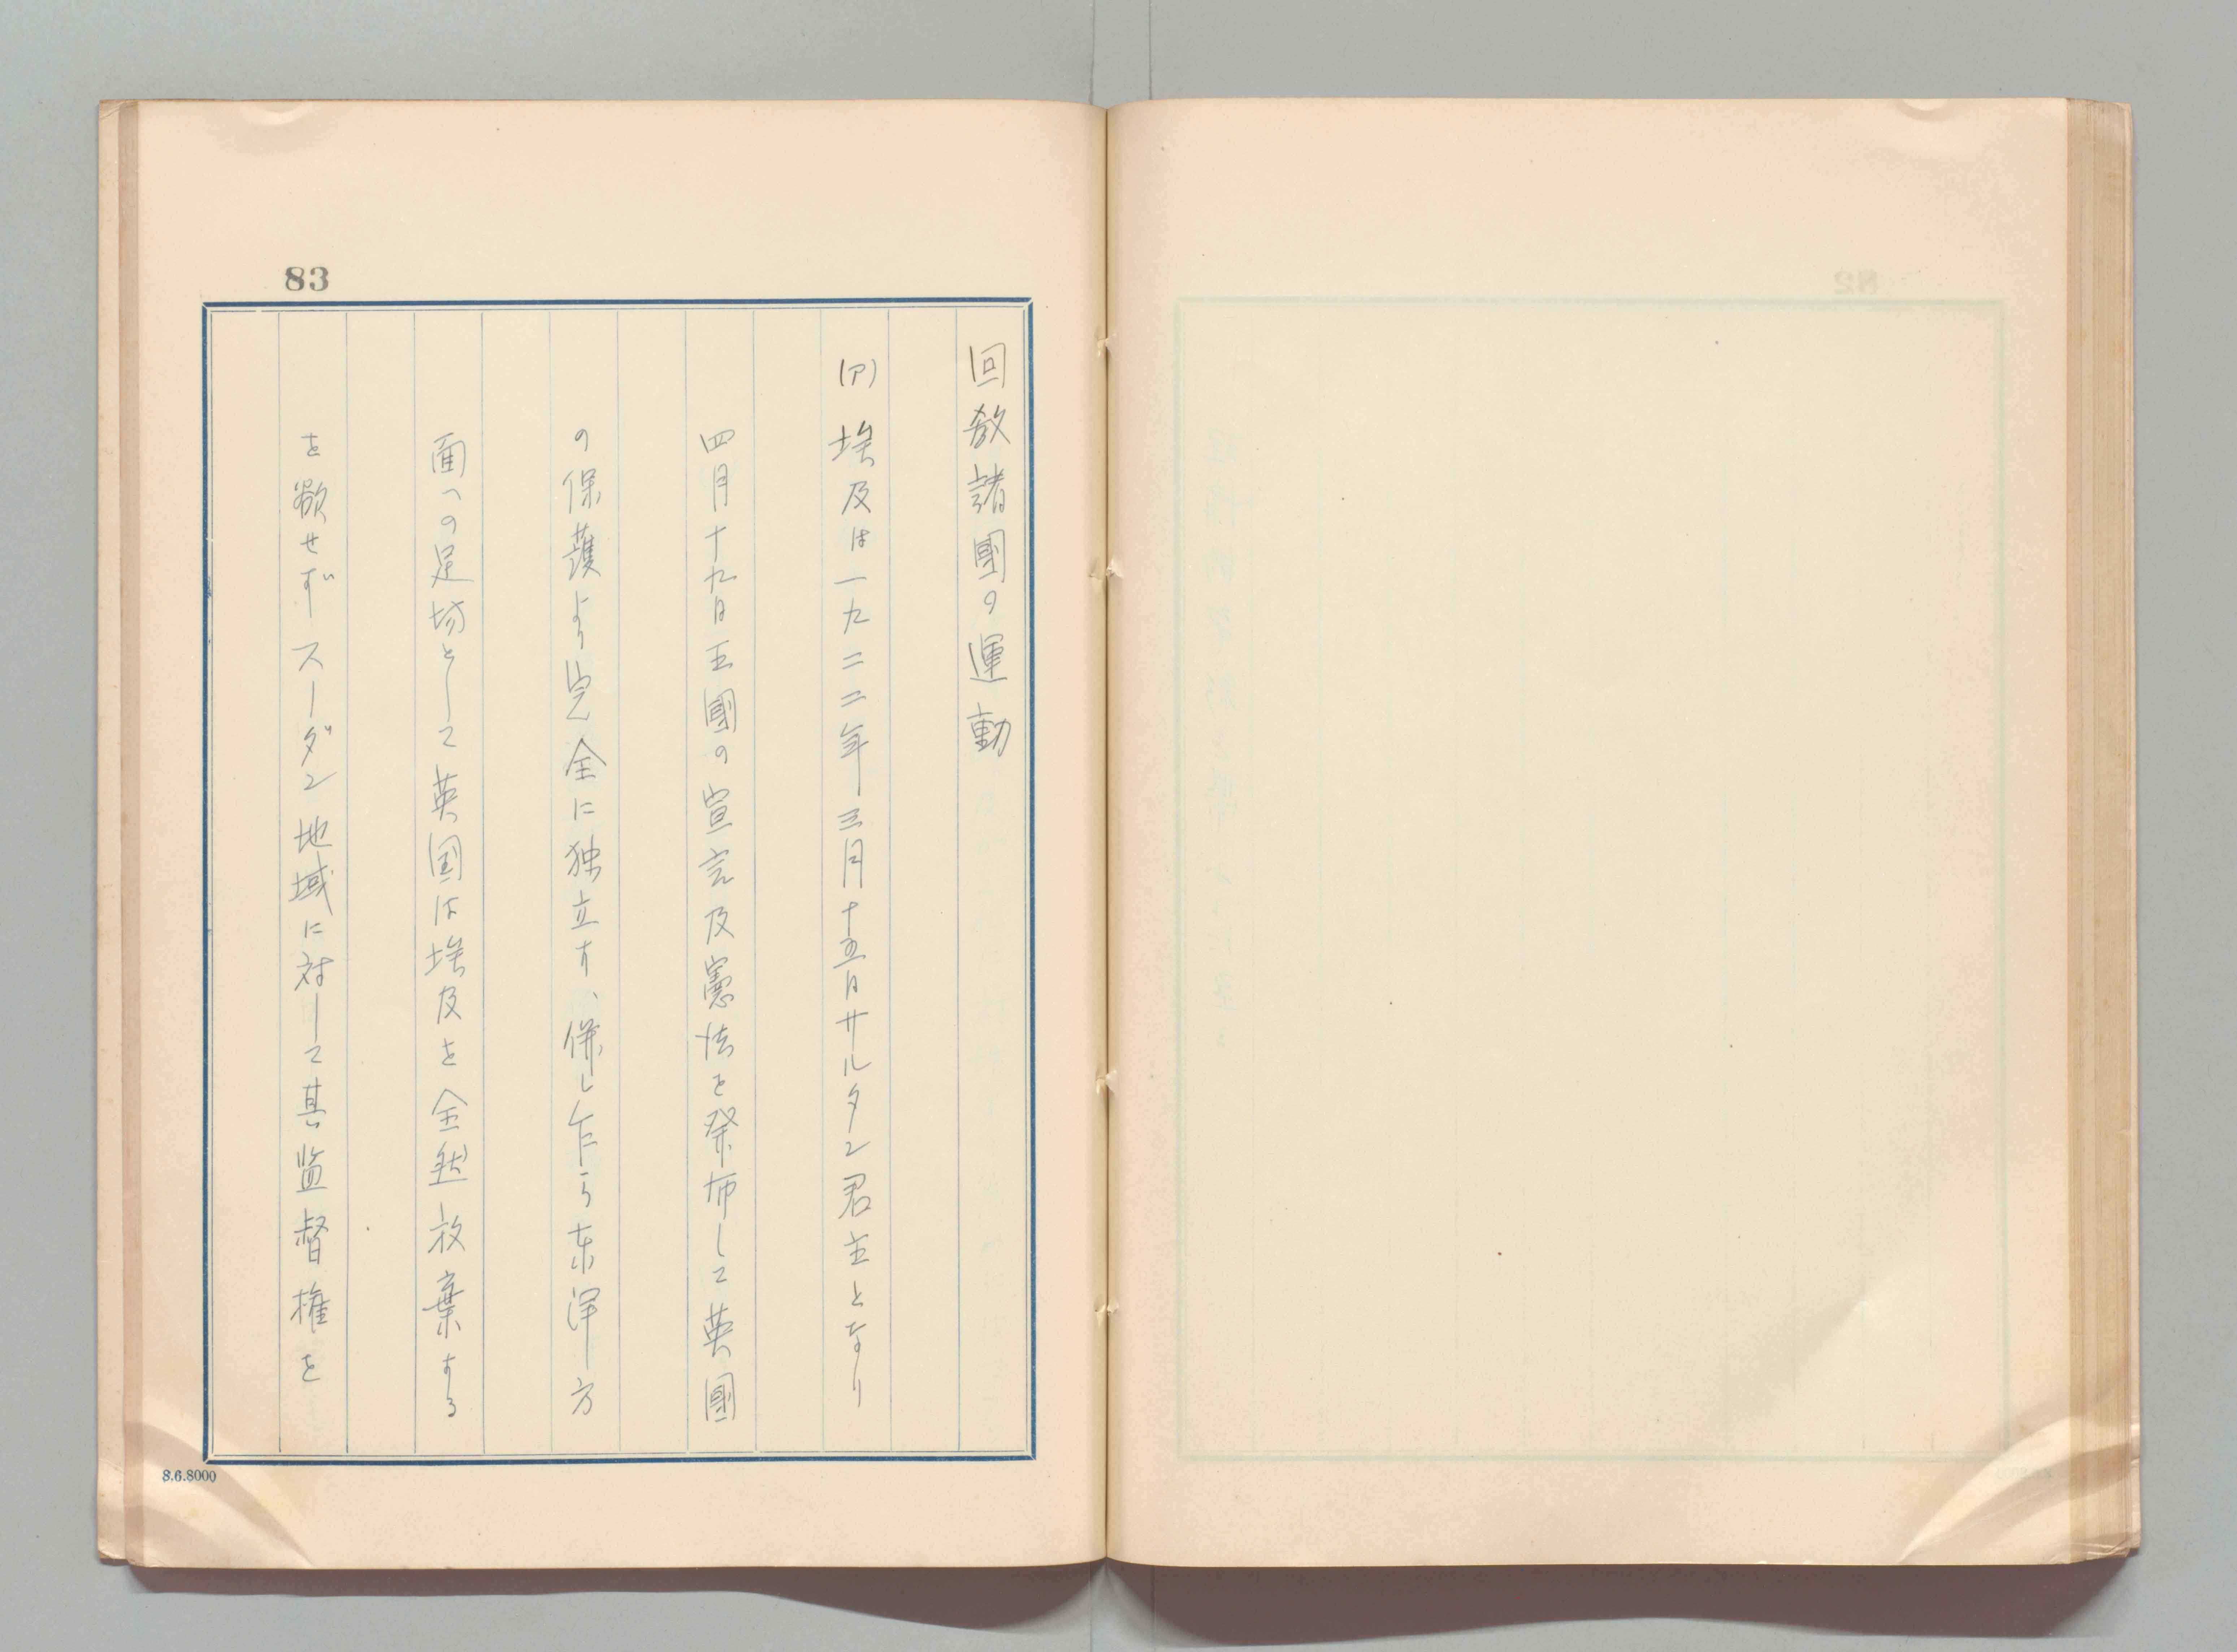 83
回教諸國の運動
(ア) 埃及は一九二二年三月十五日サルタン君主となり
四月十九日王國の宣言及憲法を発布して英國
の保護より完全に独立す、併し乍ら東洋方
面への足場として英国は埃及を全然放棄する
を欲せずスーダン地域に対して其監督権を
8.6.8000